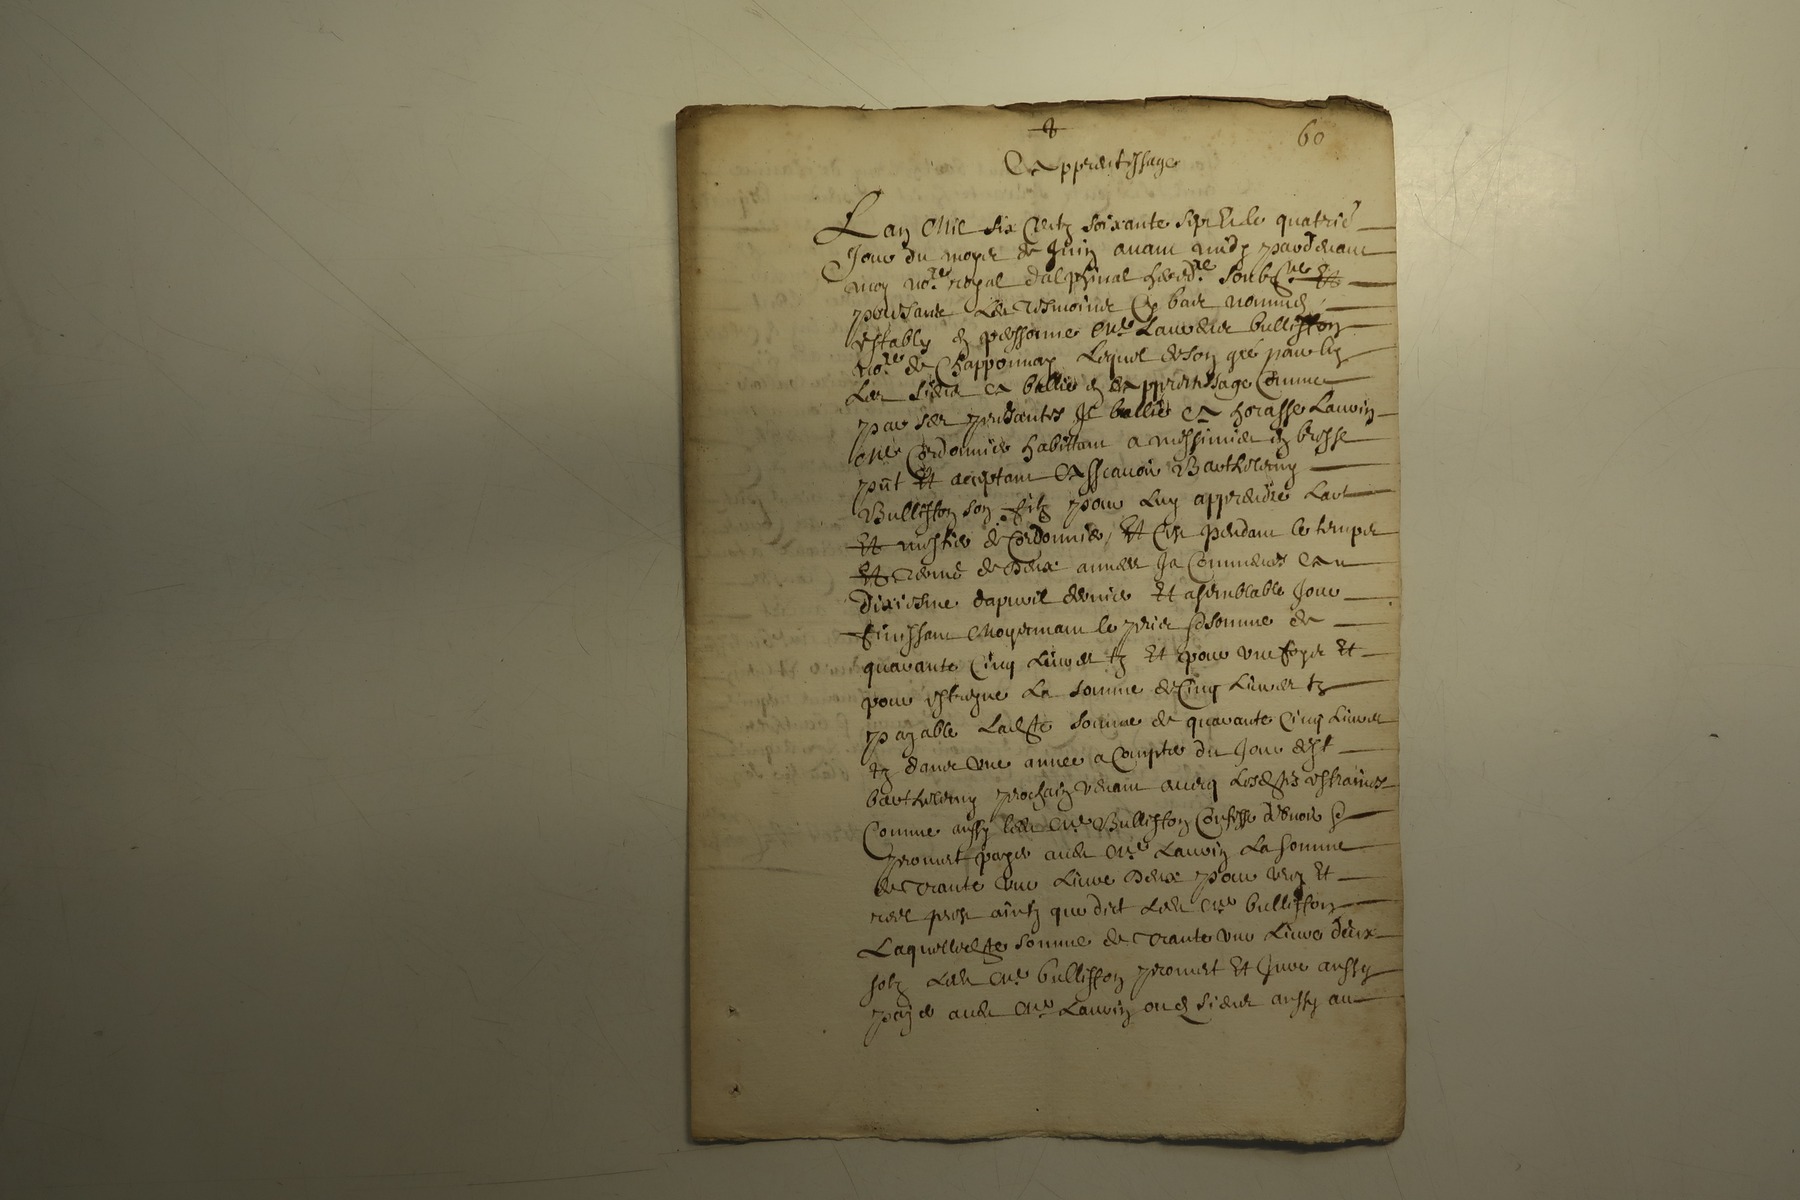 60
Apprentissage
L an Mil six Centz soixante sept & le quatrie
Jour du moys de Juin avant midy pardevant
moy no.re royal dalphinal hered.re soubz.ne et
presantz les tesmoins en bas nommes
estably en perssonne Me Laurens bulliffon
no.re de Chapponnay Lequel de son gré pour luy
Les siens a ballie en apprentissage Comme
par ses presantes Il ballie a horasse Lauvin
Me Cordonnier habittant a messimier en bresse
pnt et aceptant Assavoir Barthelemy
Bulliffon son filz pour luy apprendre Lart
et mestier de Cordonnier, et Ce pendant le temps
et terme de deux annees Ja Commences Au
dixiesme dapvril dernier et a semblable Jour
finissant Moyennant le pris & somme de
quarante Cinq Livres tz et pour une foys et
pour estregne La somme de Cinq Livres tz
payable Ladite somme de quarante Cinq Livres
tz dans une annee a Compter du Jour de st
barthelemy prochain venant avecq Lesdites estraines
Comme aussy led Me Bulliffon Confesse debvoir &
promet payer aud Me Lauvin La somme
de trante une Livre deux pour vray et
reel prest ainsy que dict led Me bulliffon
Laquelle dite somme de trante une Livre deux
solz led Me bulliffon promet et Jure aussy
payer aud Me Lauvin ou es siens aussy au